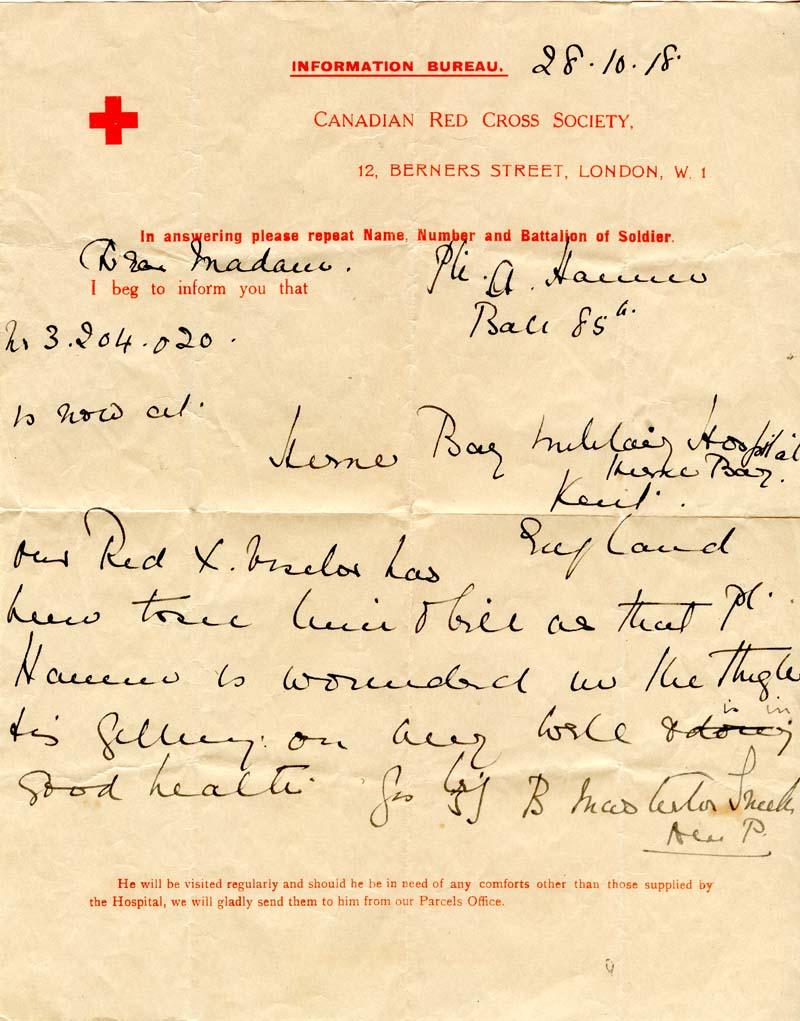 INFORMATION BUREAU. 28.10.18.
CANADIAN RED CROSS SOCIETY,
12, BERNERS STREET, LONDON, W. 1
In answering please repeat Name, Number and Battalion of Soldier.
Dear Madam. Pte. A. Hammo
I beg to inform you that
Batt 85th.
No 3.204.020.
is now at
Herne Bay Military Hospital
Herne Bay.
Kent.
England
Our Red X. visitor has
been to see him & tells us that Pte.
is wounded in the Thigh
His getting on very well & doing is in
good health. B
He will be visited regularly and should he be in need of any comforts other than those supplied by
the Hospital, we will gladly send them to him from our Parcels Office.